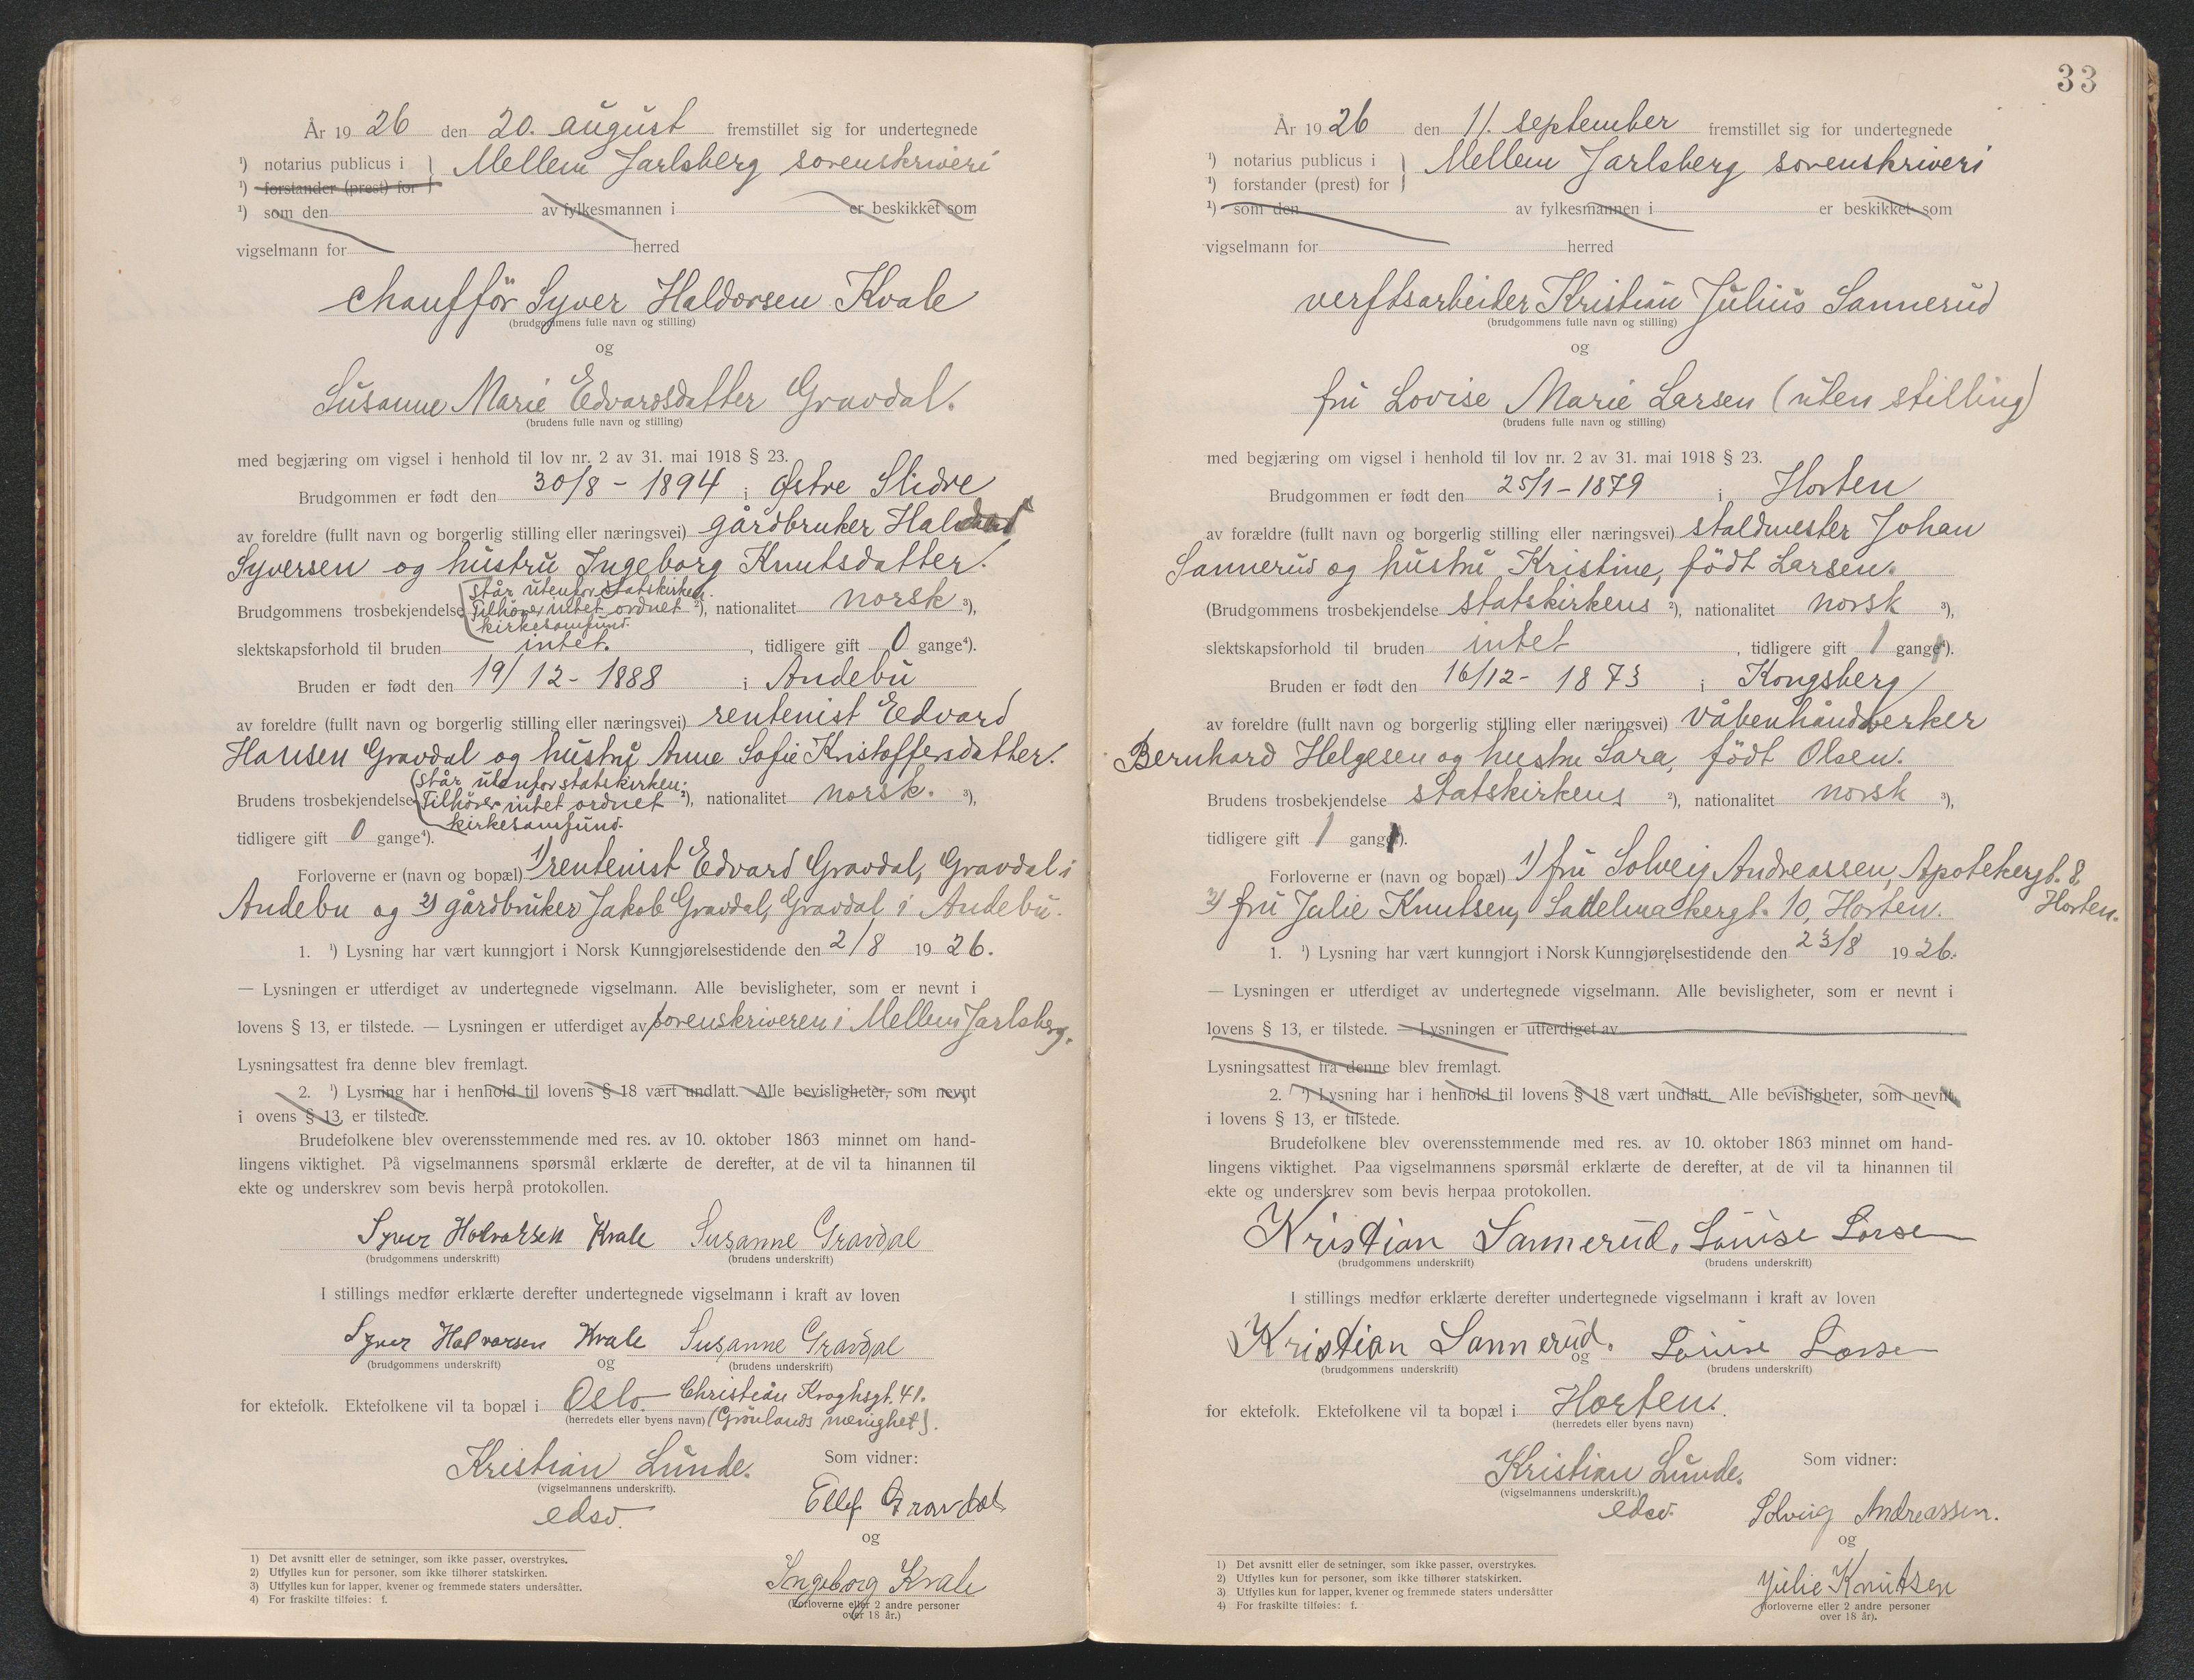 År 1926 den 20. august fremstillet sig for undertegnede
¹) notarius publicus i } Mellem Jarlsberg sorenskriveri
¹) forstander (prest) for
¹) som den av fylkesmannen i er beskikket som
vigselmann for herred
chaufför Syver Haldorsen Kvale
(brudgommens fulle navn og stilling)
og
Susanne Marie Edvardsdatter Gravdal.
(brudens fulle navn og stilling)
med begjæring om vigsel i henhold til lov nr. 2 av 31. mai 1918 § 23.
Brudgommen er født den 30/8 - 1894 i Østre Slidre
av foreldre (fullt navn og borgerlig stilling eller næringsvei) gårdbruker
Syversen og hustru Ingeborg Knutsdatter.
står utenfor statskirken.
Brudgommens trosbekjendelse Tilhører intet ordnet ²), nationalitet norsk ³),
kirkesamfund.
slektskapsforhold til bruden intet. , tidligere gift 0 gange⁴).
Bruden er født den 19/12 - 1888 i Andebu
av foreldre (fullt navn og borgerlig stilling eller næringsvei) rentenist Edvard
Hansen Gravdal og hustru Anne Sofie Kristoffersdatter.
står utenfor statskirken.
Brudens trosbekjendelse Tilhører intet ordnet ²), nationalitet norsk. ³),
kirkesamfund.
tidligere gift 0 gange⁴).
Forloverne er (navn og bopæl) 1) rentenist Edvard Gravdal, Gravdal i
Andebu og 2) gårdbruker Jakob Gravdal, Gravdal i Andebu.
1. ¹) Lysning har vært kunngjort i Norsk Kunngjørelsestidende den 2/8 1926.
— Lysningen er utferdiget av undertegnede vigselmann. Alle bevisligheter, som er nevnt i
lovens § 13, er tilstede. — Lysningen er utferdiget av sorenskriveren i Mellem Jarlsberg.
Lysningsattest fra denne blev fremlagt.
2. ¹) Lysning har i henhold til lovens § 18 vært undlatt. Alle bevisligheter, som nevnt
i ovens § 13, er tilstede.
Brudefolkene blev overensstemmende med res. av 10. oktober 1863 minnet om hand-
lingens viktighet. På vigselmannens spørsmål erklærte de derefter, at de vil ta hinannen til
ekte og underskrev som bevis herpå protokollen.
Syver Halvorsen Kvale Susanne Gravdal
(brudgommens underskrift) (brudens underskrift)
I stillings medfør erklærte derefter undertegnede vigselmann i kraft av loven
Syver Halvorsen Kvale Susanne Gravdal
(brudgommens underskrift) og (brudens underskrift)
for ektefolk. Ektefolkene vil ta bopæl i Oslo Christian Kroghsgt. 41.
(herredets eller byens navn) (Grönlands menighet).
Kristian Lunde. Som vidner:
(vigselmannens underskrift).
edsv. Ellef Gravdal
og
Ingeborg Kvale
(Forloverne eller 2 andre personer
over 18 år.)
1) Det avsnitt eller de setninger, som ikke passer, overstrykes.
2) Utfylles kun for personer, som ikke tilhører statskirken.
3) Utfylles kun for lapper, kvener og fremmede staters undersåtter.
4) For fraskilte tilføies: f.
33
År 1926 den 11. september fremstillet sig for undertegnede
¹) notarius publicus i } Mellem Jarlsberg sorenskriveri
¹) forstander (prest) for
¹) som den av fylkesmannen i er beskikket som
vigselmann for herred
verftsarbeider Kristian Julius Sannerud
(brudgommens fulle navn og stilling)
og
fru Lovise Marie Larsen (uten stilling)
(brudens fulle navn og stilling)
med begjæring om vigsel i henhold til lov nr. 2 av 31. mai 1918 § 23.
Brudgommen er født den 25/1 - 1879 i Horten
av forældre (fullt navn og borgerlig stilling eller næringsvei) staldmester Johan
Sannerud og hustru Kristine, födt Larsen.
(Brudgommens trosbekjendelse statskirkens ²), nationalitet norsk ³),
slektskapsforhold til bruden intet , tidligere gift 1 gang⁴).
Bruden er født den 16/12 - 1873 i Kongsberg
av foreldre (fullt navn og borgerlig stilling eller næringsvei) våbenhåndverker
Bernhard Helgesen og hustru Sara, födt Olsen.
Brudens trosbekjendelse statskirkens ²), nationalitet norsk ³),
tidligere gift 1 gang⁴).
Forloverne er (navn og bopæl) 1) fru Solveig Andreassen, Apotekergt. 8,
2) fru Julie Knutsen, Sadelmakergt. 10, Horten. Horten.
1. ¹) Lysning har vært kunngjort i Norsk Kunngjørelsestidende den 23/8 1926.
— Lysningen er utferdiget av undertegnede vigselmann. Alle bevisligheter, som er nevnt i
lovens § 13, er tilstede. — Lysningen er utferdiget av
Lysningsattest fra denne blev fremlagt.
2. ¹) Lysning har i henhold til lovens § 18 vært undlatt. Alle bevisligheter, som nevnt
i lovens § 13, er tilstede.
Brudefolkene blev overensstemmende med res. av 10. oktober 1863 minnet om hand-
lingens viktighet. Paa vigselmannens spørsmål erklærte de derefter, at de vil ta hinannen til
ekte og underskrev som bevis herpaa protokollen.
Kristian Sannerud. Louise Larsen
(brudgommens underskrift) (brudens underskrift)
I stillings medfør erklærte derefter undertegnede vigselmann i kraft av loven
Kristian Sannerud. Louise Larsen
(brudgommens underskrift) og (brudens underskrift)
for ektefolk. Ektefolkene vil ta bopæl i Horten.
(herredets eller byens navn)
Kristian Lunde. Som vidner:
(vigselmannens underskrift.)
edsv. Solveig Andreassen.
og
Julie Knutsen
(forloverne eller 2 andre personer
over 18 år).
1) Det avsnitt eller de setninger, som ikke passer, overstrykes.
2) Utfylles kun for personer, som ikke tilhører statskirken.
3) Utfylles kun for lapper, kvener og fremmede staters undersåtter
4) For fraskilte tilføies: f.